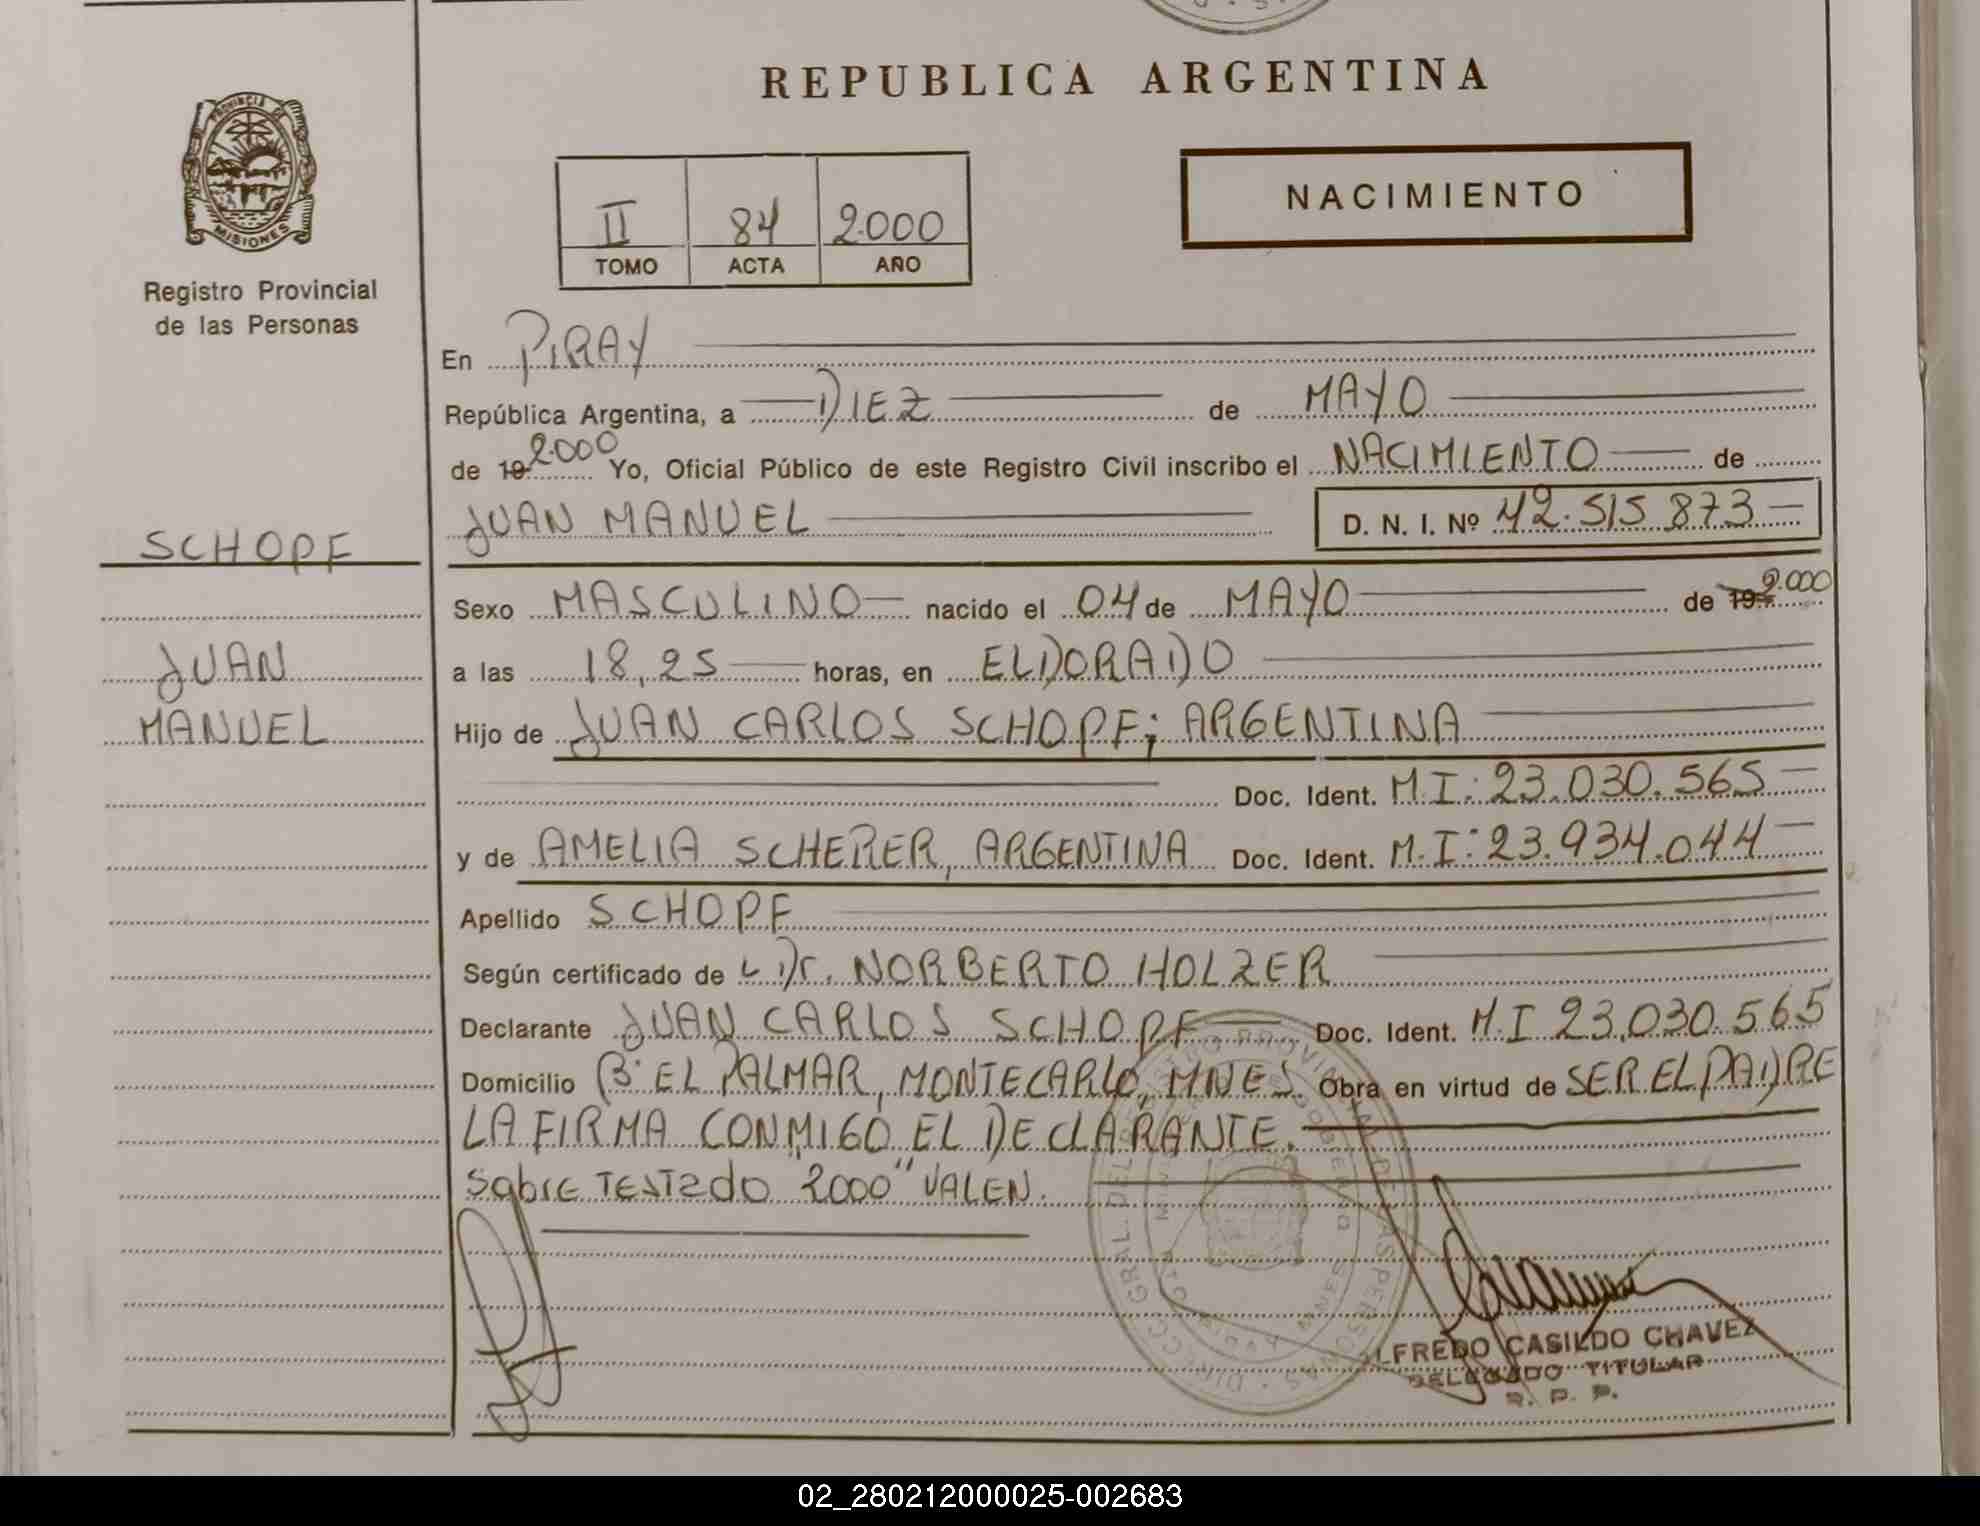 REPUBLICA ARGENTINA
PROVINCIA DE
MISIONES
Registro Provincial
de las Personas
NACIMIENTO
II 84 2.000
TOMO ACTA AÑO
En PIRAY
República Argentina, a DIEZ de MAYO
de 19 2.000 Yo, Oficial Público de este Registro Civil inscribo el NACIMIENTO de
JUAN MANUEL D. N. I. Nº 42.515.873
SCHOPF
JUAN
MANUEL
Sexo MASCULINO nacido el 04 de MAYO de 19 2.000
a las 18,25 horas, en ELDORADO
Hijo de JUAN CARLOS SCHOPF; ARGENTINA
Doc. Ident. M.I: 23.030.565
y de AMELIA SCHERER, ARGENTINA Doc. Ident. M.I: 23.934.044
Apellido SCHOPF
Según certificado de L Dr. NORBERTO HOLZER
Declarante JUAN CARLOS SCHOPF Doc. Ident. M.I 23.030.565
Domicilio Bº EL PALMAR, MONTECARLO, MNES. Obra en virtud de SER EL PADRE
LA FIRMA CONMIGO EL DECLARANTE.
Sobre TESTado "2000" VALEN.
LFREDO CASILDO CHAVEZ
DELEGADO TITULAR
R. P. P.
02_280212000025-002683